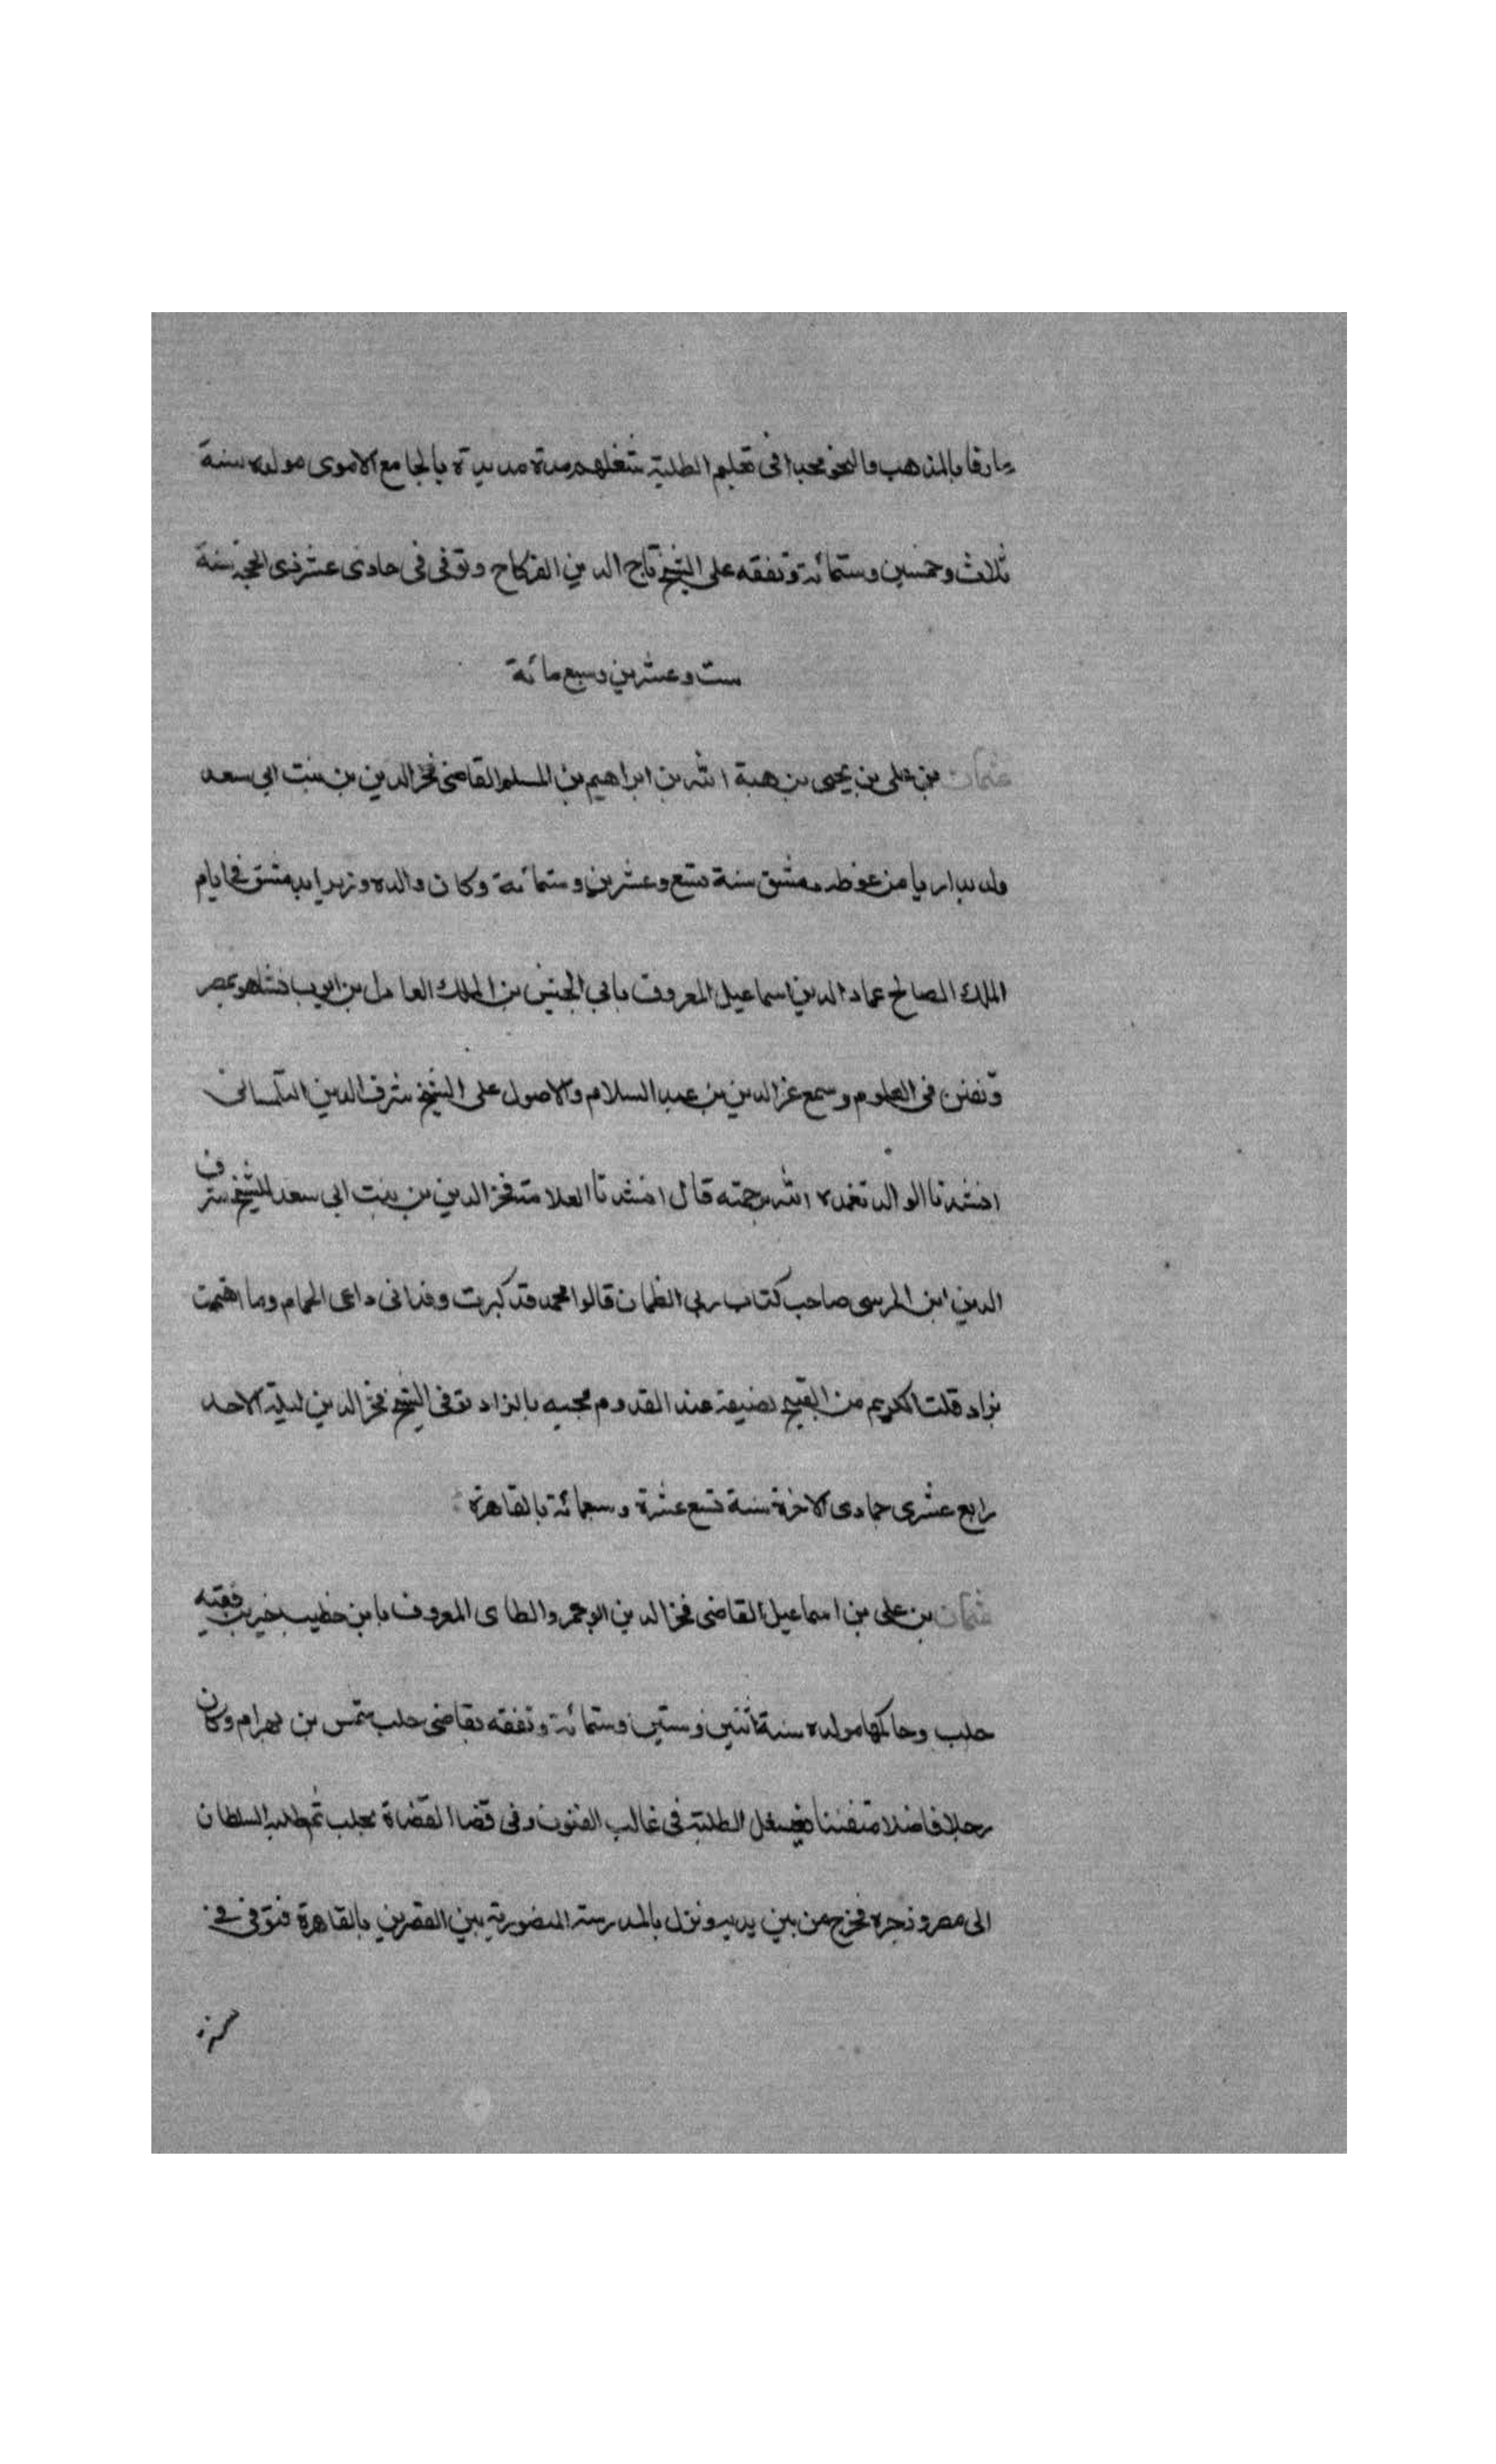 عارفا بالمذهب والنحو محبا فى تعليم الطلبة شغلهم مدة مديدة بالجامع الاموى مولده سنة
ثلاث وخمسين وستمائة وتفقه على الشيخ تاج الدين الفركاح وتوفى فى حادى عشر ذى الحجة سنة
ست وعشرين وسبع مائة
عثمان بن على بن يحيى بن هبة الله بن ابراهيم بن المسلم القاضى فخر الدين بن بنت ابى سعد
ولد بداريا من غوطه دمشق سنة تسع وعشرين وستمائة وكان والده وزيرا بدمشق فى ايام
الملك الصالح عماد الدين اسماعيل المعروف بابى الجيش بن الملك العادل بن ايوب فنشاهو بمصر
وتفنن فى العلوم وسمع عز الدين بن عبد السلام والاصول على الشيخ شرف الدين التلمسانى
انشدنا الوالد تغمده الله برحمته قال انشدنا العلامة فخر الدين بن بنت ابى سعد للشيخ شرف
الدين ابن المرسى صاحب كتاب رى الظمان قالوا محمد قد كبرت وقد اتى داعى الحمام وما اهتممت
بزاد قلت الكريم من القبيح لضيفه عند القدوم مجيه بالزاد توفى الشيخ فخر الدين ليلة الاحد
رابع عشرى جمادى الاخرة سنة تسع عشرة وسبعمائة بالقاهرة
عثمان بن على بن اسماعيل القاضى فخر الدين ابو عمرو الطاى المعروف بابن خطيب جبرين فقيه
حلب وحاكمها مولده سنة اثنين وستين وستمائة وتفقه بقاضى حلب شمس بن بهرام وكان
رجلا فاضلا متفننا يشغل الطلبة فى غالب الفنون وفى قضا القضاة بحلب ثم طلبه السلطان
الى مصر وزجره فخرج من بين يديه ونزل بالمدرسة المنصورية بين القصرين بالقاهرة فتوفى فى